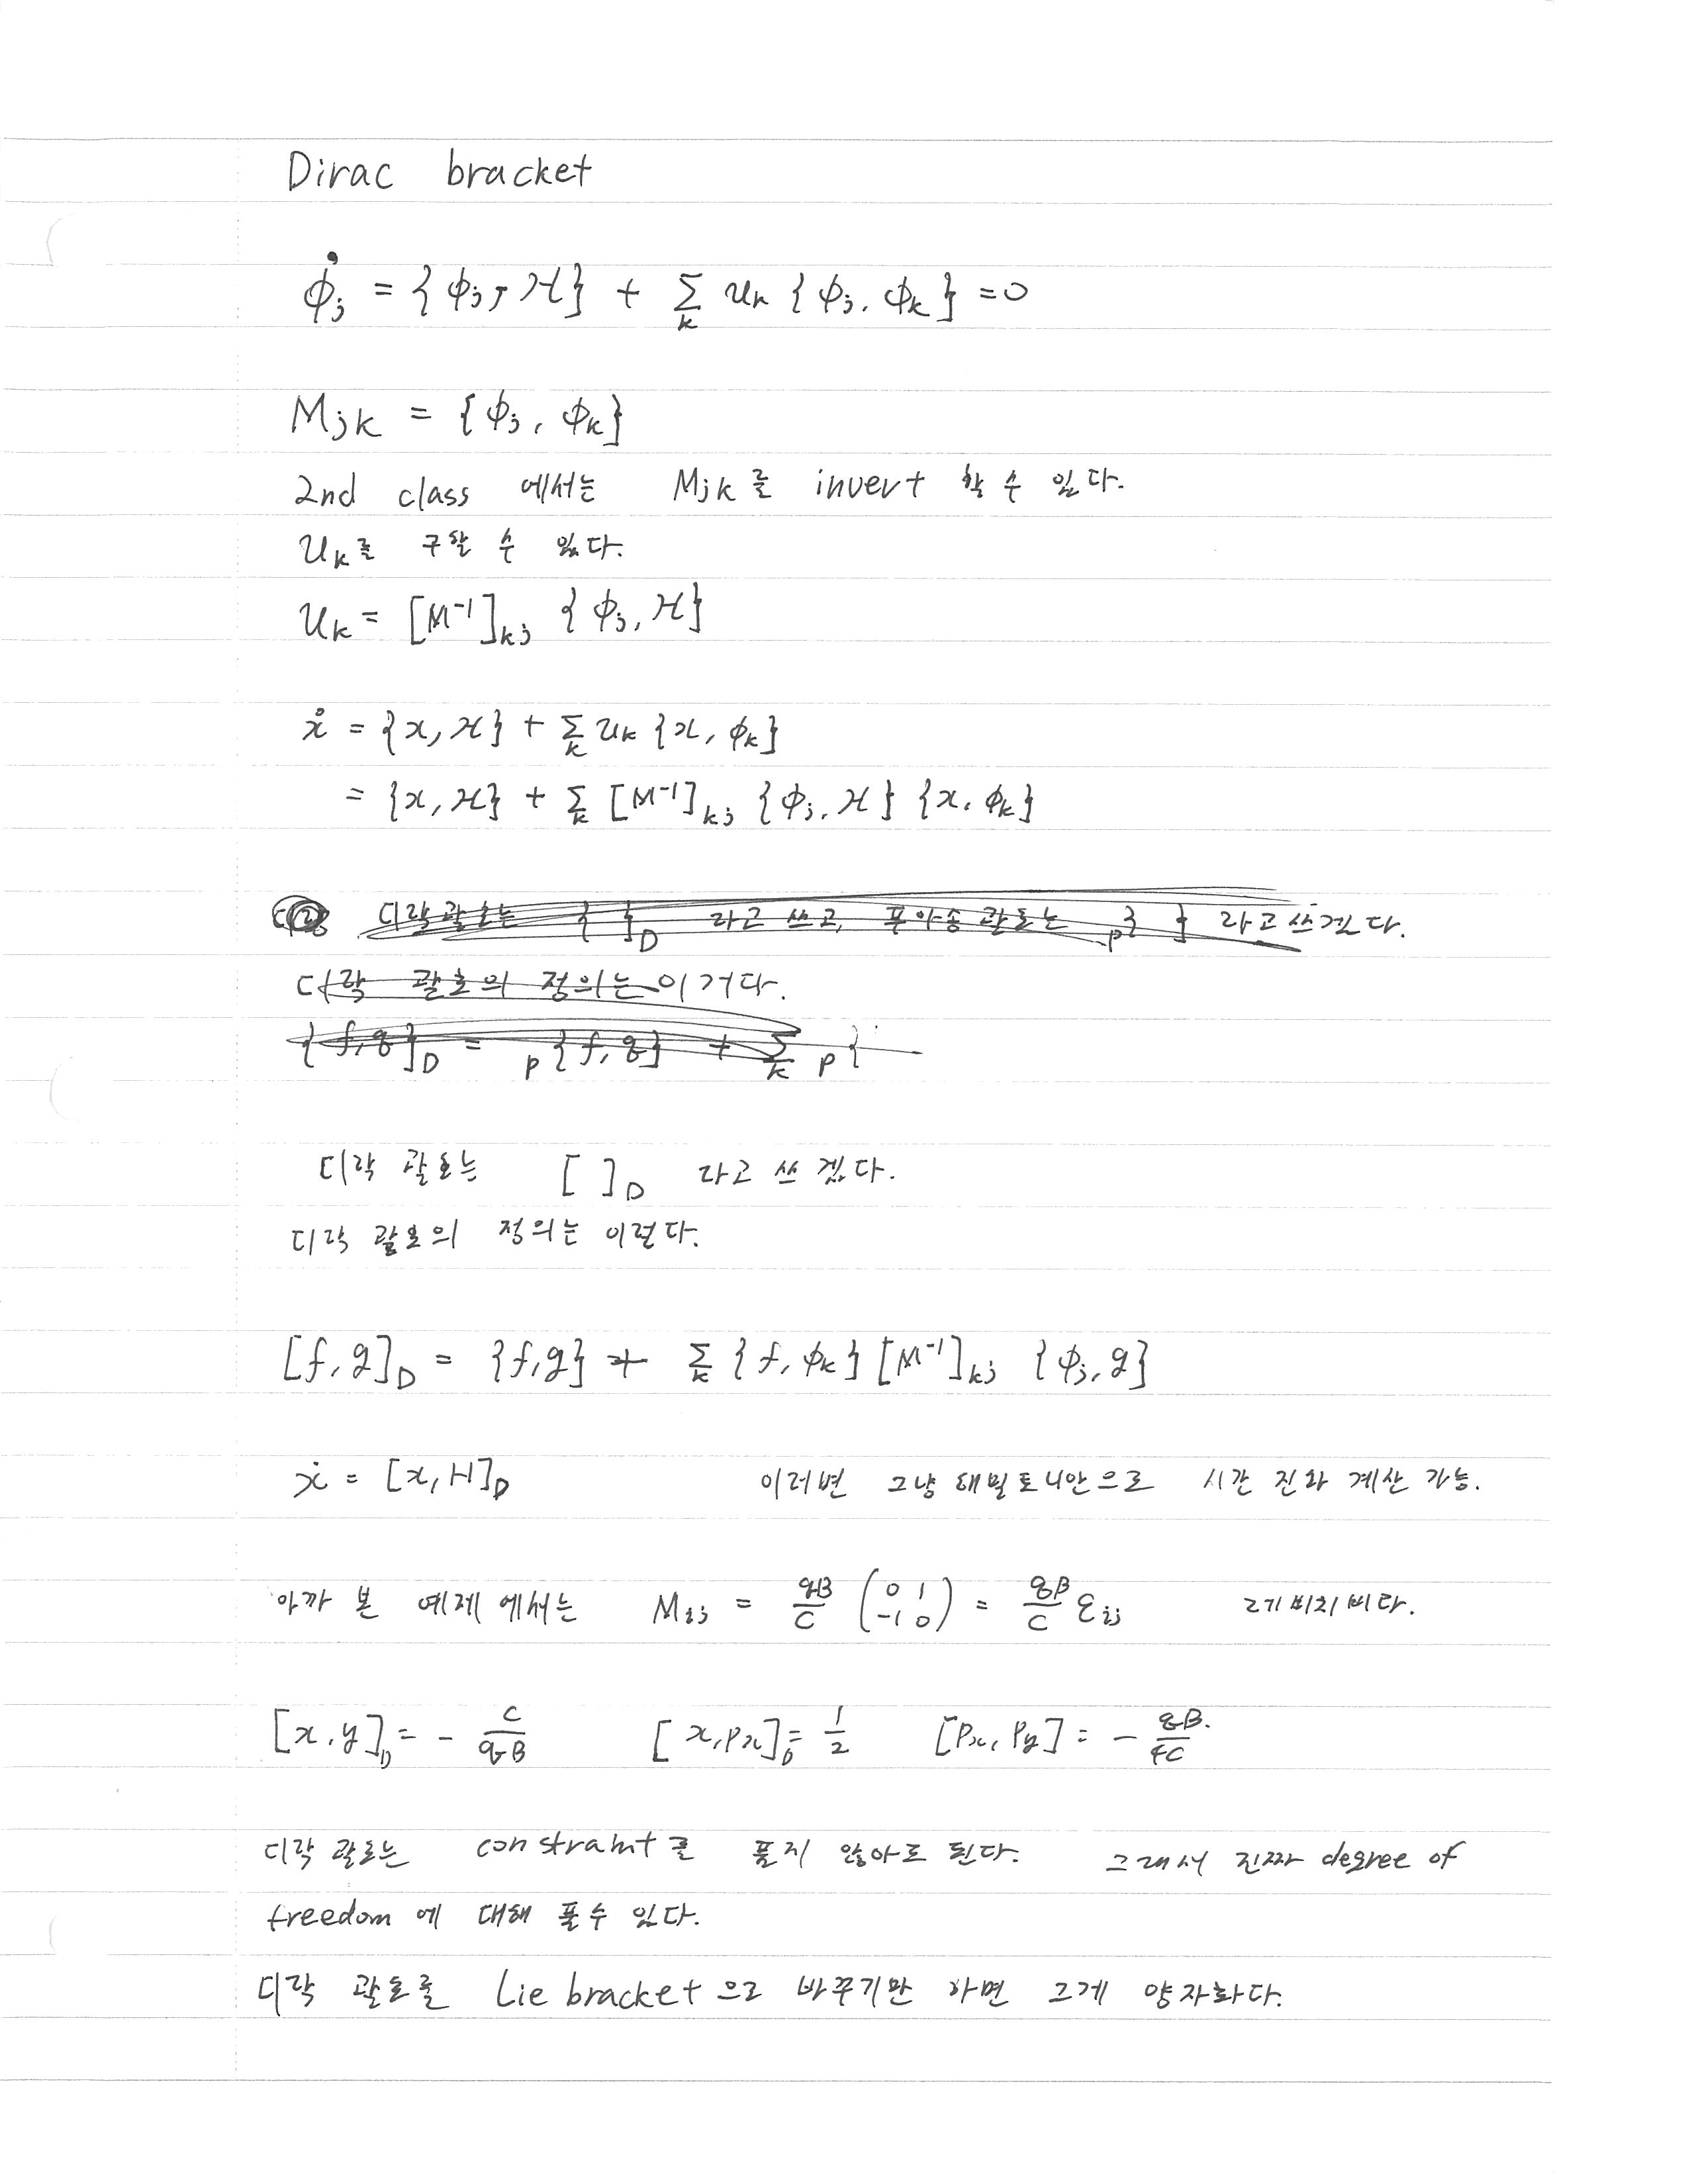 Dirac bracket
ϕ̇_j = {ϕ_j, H} + Σ_k u_k {ϕ_j, ϕ_k} = 0
M_jk = {ϕ_j, ϕ_k}
2nd class 에서는 M_jk를 invert 할 수 있다.
u_k를 구할 수 있다.
u_k = [M⁻¹]_kj {ϕ_j, H}
ẋ = {x, H} + Σ_k u_k {x, ϕ_k}
= {x, H} + Σ_k [M⁻¹]_kj {ϕ_j, H} {x, ϕ_k}
디락괄호는 { }_D 라고 쓰고, 푸아송 괄호는 _p{ } 라고 쓰겠다.
디락 괄호의 정의는 이거다.
{f, g}_D = _p{f, g} + Σ_k _p{
디락 괄호는 [ ]_D 라고 쓰겠다.
디락 괄호의 정의는 이렇다.
[f, g]_D = {f, g} + Σ_k {f, ϕ_k} [M⁻¹]_kj {ϕ_j, g}
ẋ = [x, H]_D 이러면 그냥 해밀토니안으로 시간 진화 계산 가능.
아까 본 예제에서는 M_ij = qB/C (0 1 -1 0) = qB/C ε_ij 레비치비타.
[x, y]_D = - C/qB [x, p_x]_D = 1/2 [p_x, p_y] = - qB/4C.
디락 괄호는 constraint를 풀지 않아도 된다. 그래서 진짜 degree of
freedom에 대해 풀 수 있다.
디락 괄호를 Lie bracket으로 바꾸기만 하면 그게 양자화다.